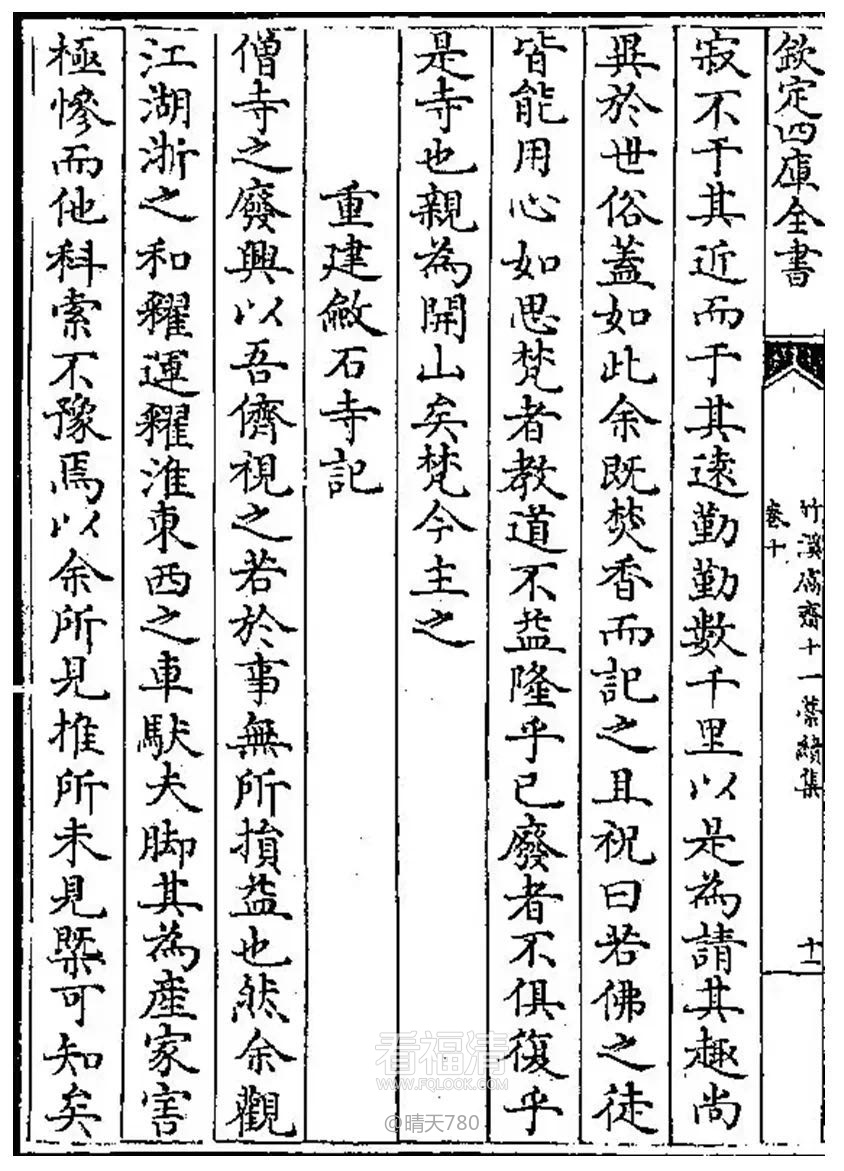 欽定四庫全書
竹溪鬳齋十一藁續集
卷十
十一
寂不于其近而于其逺勤勤數千里以是為請其趣尚
異於世俗蓋如此余既焚香而記之且祝曰若佛之徒
皆能用心如思梵者教道不益隆乎已廢者不俱復乎
是寺也親為開山矣梵今主之
重建斂石寺記
僧寺之廢興以吾儕視之若於事無所損益也然余觀
江湖浙之和糴運糴淮東西之車馱夫脚其為産家害
極慘而他科索不豫焉以余所見推所未見槩可知矣
看福清
WWW.FQLOOK.COM
@晴天780